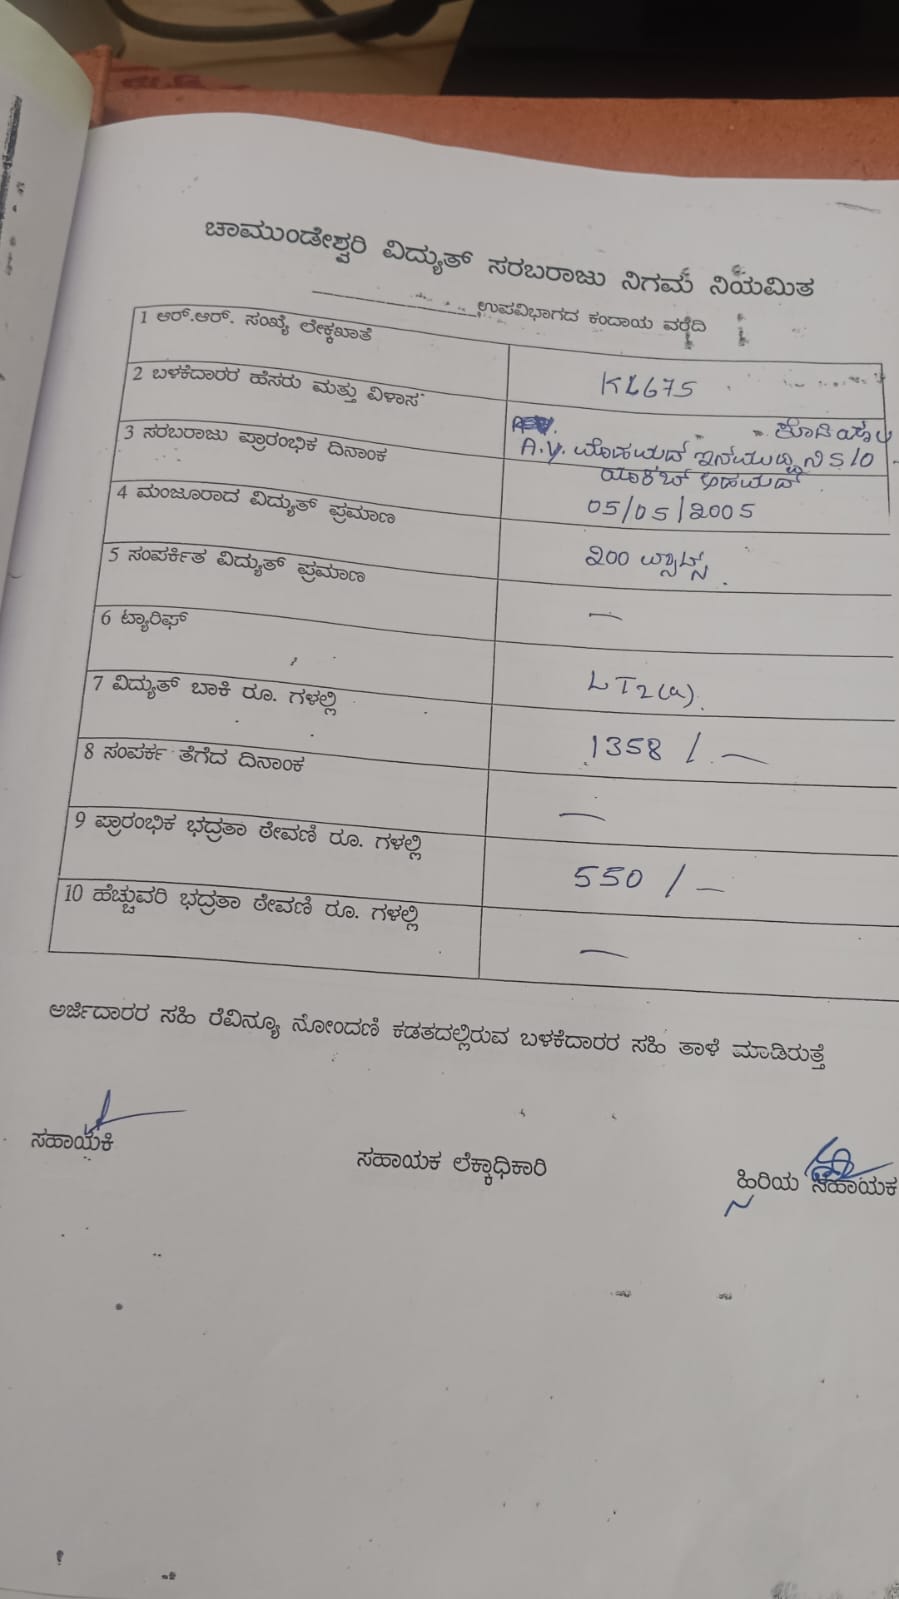 ಚಾಮುಂಡೇಶ್ವರಿ ವಿದ್ಯುತ್ ಸರಬರಾಜು ನಿಗಮ ನಿಯಮಿತ
ಉಪವಿಭಾಗದ ಕಂದಾಯ ವರದಿ
1 ಆರ್.ಆರ್. ಸಂಖ್ಯೆ ಲೆಕ್ಕಖಾತೆ KL675
2 ಬಳಕೆದಾರರ ಹೆಸರು ಮತ್ತು ವಿಳಾಸ A.Y. ಮೊಹಮದ್ S/O
ಯಾಕಬ್ ಅಹಮದ್
3 ಸರಬರಾಜು ಪ್ರಾರಂಭಿಕ ದಿನಾಂಕ 05/05/2005
4 ಮಂಜೂರಾದ ವಿದ್ಯುತ್ ಪ್ರಮಾಣ 200 ವ್ಯಾಟ್ಸ್.
5 ಸಂಪರ್ಕಿತ ವಿದ್ಯುತ್ ಪ್ರಮಾಣ —
6 ಟ್ಯಾರಿಫ್ LT2(a).
7 ವಿದ್ಯುತ್ ಬಾಕಿ ರೂ. ಗಳಲ್ಲಿ 1358 /. —
8 ಸಂಪರ್ಕ ತೆಗೆದ ದಿನಾಂಕ —
9 ಪ್ರಾರಂಭಿಕ ಭದ್ರತಾ ಠೇವಣಿ ರೂ. ಗಳಲ್ಲಿ 550 / —
10 ಹೆಚ್ಚುವರಿ ಭದ್ರತಾ ಠೇವಣಿ ರೂ. ಗಳಲ್ಲಿ —
ಅರ್ಜಿದಾರರ ಸಹಿ ರೆವಿನ್ಯೂ ನೋಂದಣಿ ಕಡತದಲ್ಲಿರುವ ಬಳಕೆದಾರರ ಸಹಿ ತಾಳೆ ಮಾಡಿರುತ್ತೆ
ಸಹಾಯಕಿ ಸಹಾಯಕ ಲೆಕ್ಕಾಧಿಕಾರಿ ಹಿರಿಯ ಸಹಾಯಕ